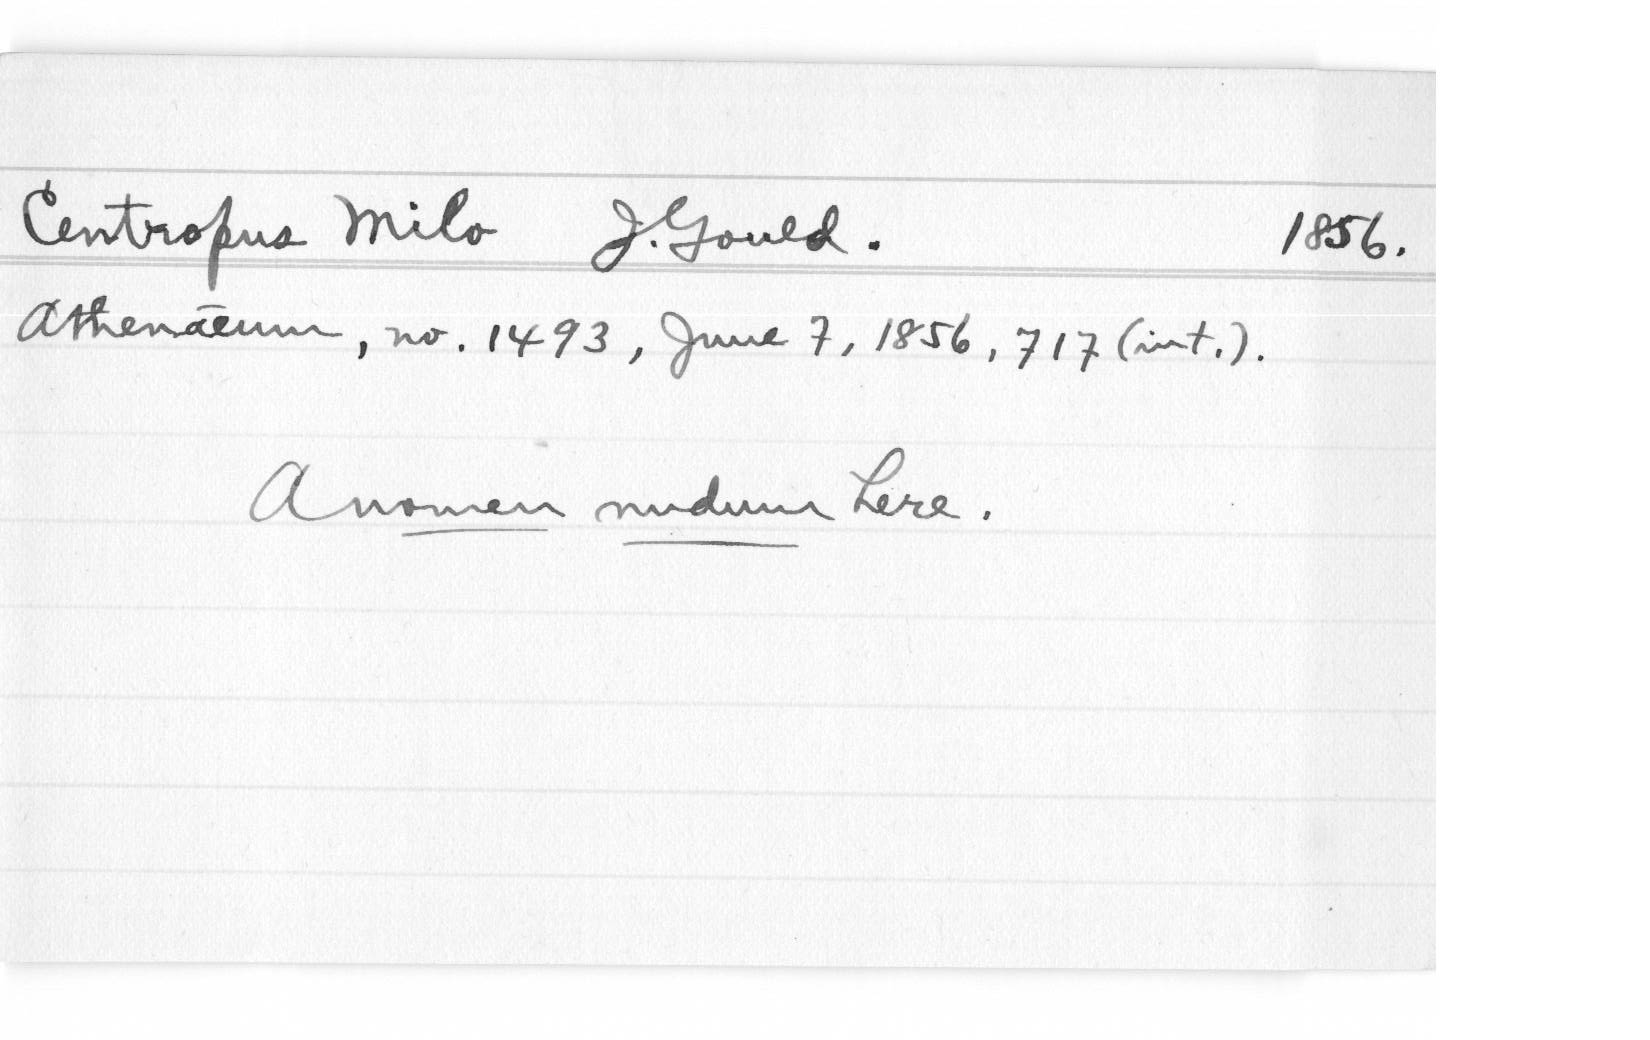 Centropus Milo J. Gould. 1856.
Athenaeum, no. 1493, June 7, 1856, 717 (int.).
A nomen nudum here.